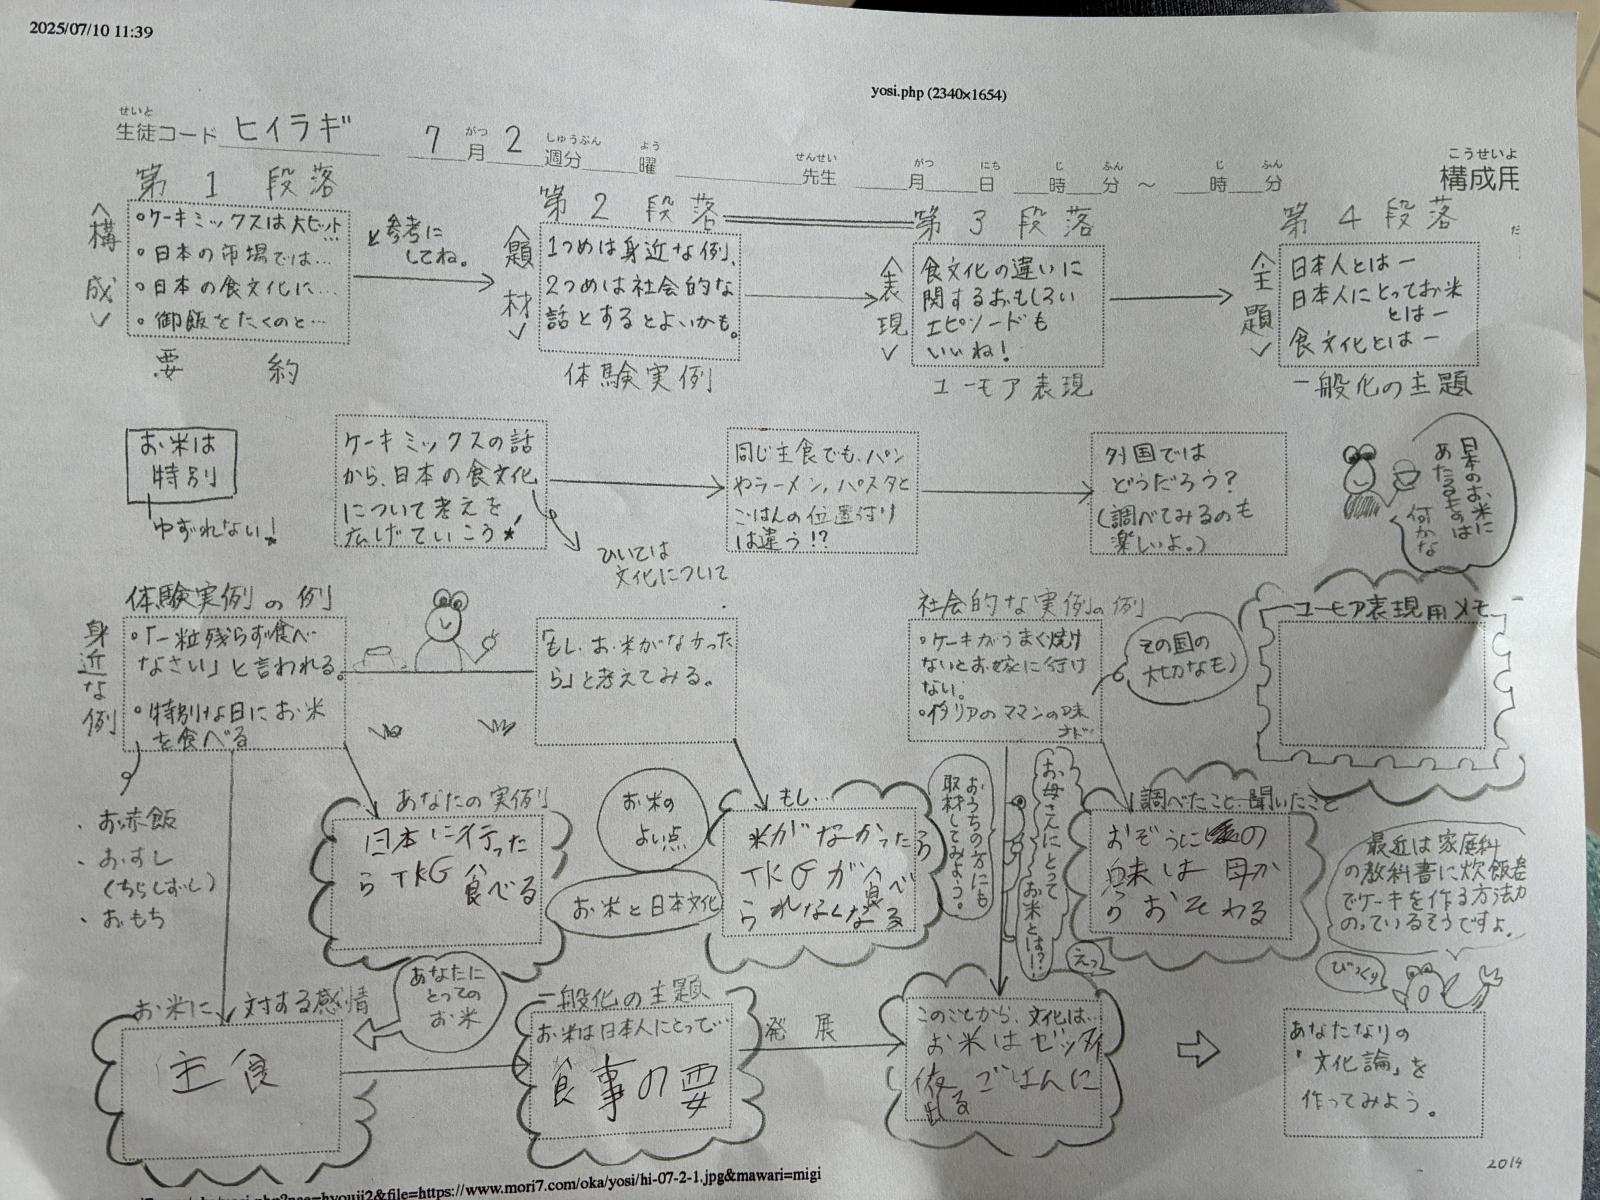 2025/07/10 11:39
yosi.php (2340×1654)
せいと
生徒コード ヒイラギ
がつ しゅうぶん よう
7月2週分 曜
せんせい
先生
がつ にち じ ふん じ ふん
月 日 時 分 ~ 時 分
こうせいよ
構成用
第1段落
<構成>
・ケーキミックスは大ヒット…
・日本の市場では…
・日本の食文化に…
・御飯をたくのと…
要約
と参考に
してね。
第2段落
<題材>
1つめは身近な例、
2つめは社会的な
話とするとよいかも。
体験実例
第3段落
<表現>
食文化の違いに
関するおもしろい
エピソードも
いいね!
ユーモア表現
第4段落
<主題>
日本人とはー
日本人にとってお米
とはー
食文化とはー
一般化の主題
お米は
特別
ゆずれない!
ケーキミックスの話
から、日本の食文化
について考えを
広げていこう
ひいては
文化について
同じ主食でも、パン
やラーメン、パスタと
ごはんの位置付け
は違う!?
外国では
どうだろう?
(調べてみるのも
楽しいよ。)
日本のお米に
あたるものは
何かな
体験実例の例
身近な例
・「一粒残らず食べ
なさい」と言われる。
・特別な日にお米
を食べる
・お赤飯
・おすし
(ちらしずし)
・おもち
「もし、お米がなかった
ら」と考えてみる。
社会的な実例の例
・ケーキがうまく焼け
ないとお嫁に行け
ない。
・イタリアのママンの味
ナド
その国の
大切なもの
ユーモア表現用メモ
あなたの実例
日本に行った
らTKG食べる
お米の
よい点
お米と日本文化
もし…
米がなかったら
TKGが食べ
られなくなる
おうちの方にも
取材してみよう。
お母さんにとって
お米とは?!
えっ
調べたこと・聞いたこと
おぞうにの
味は母か
らおそわる
最近は家庭科
の教科書に炊飯器
でケーキを作る方法が
のっているそうですよ。
びっくり
お米に対する感情
主食
あなたに
とっての
お米
一般化の主題
お米は日本人にとって…
食事の要
発展
このことから、文化は…
お米はゼッタイ
夜ごはんに
出る
あなたなりの
「文化論」を
作ってみよう。
2014
file=https://www.mori7.com/oka/yosi/hi-07-2-1.jpg&mawari=migi